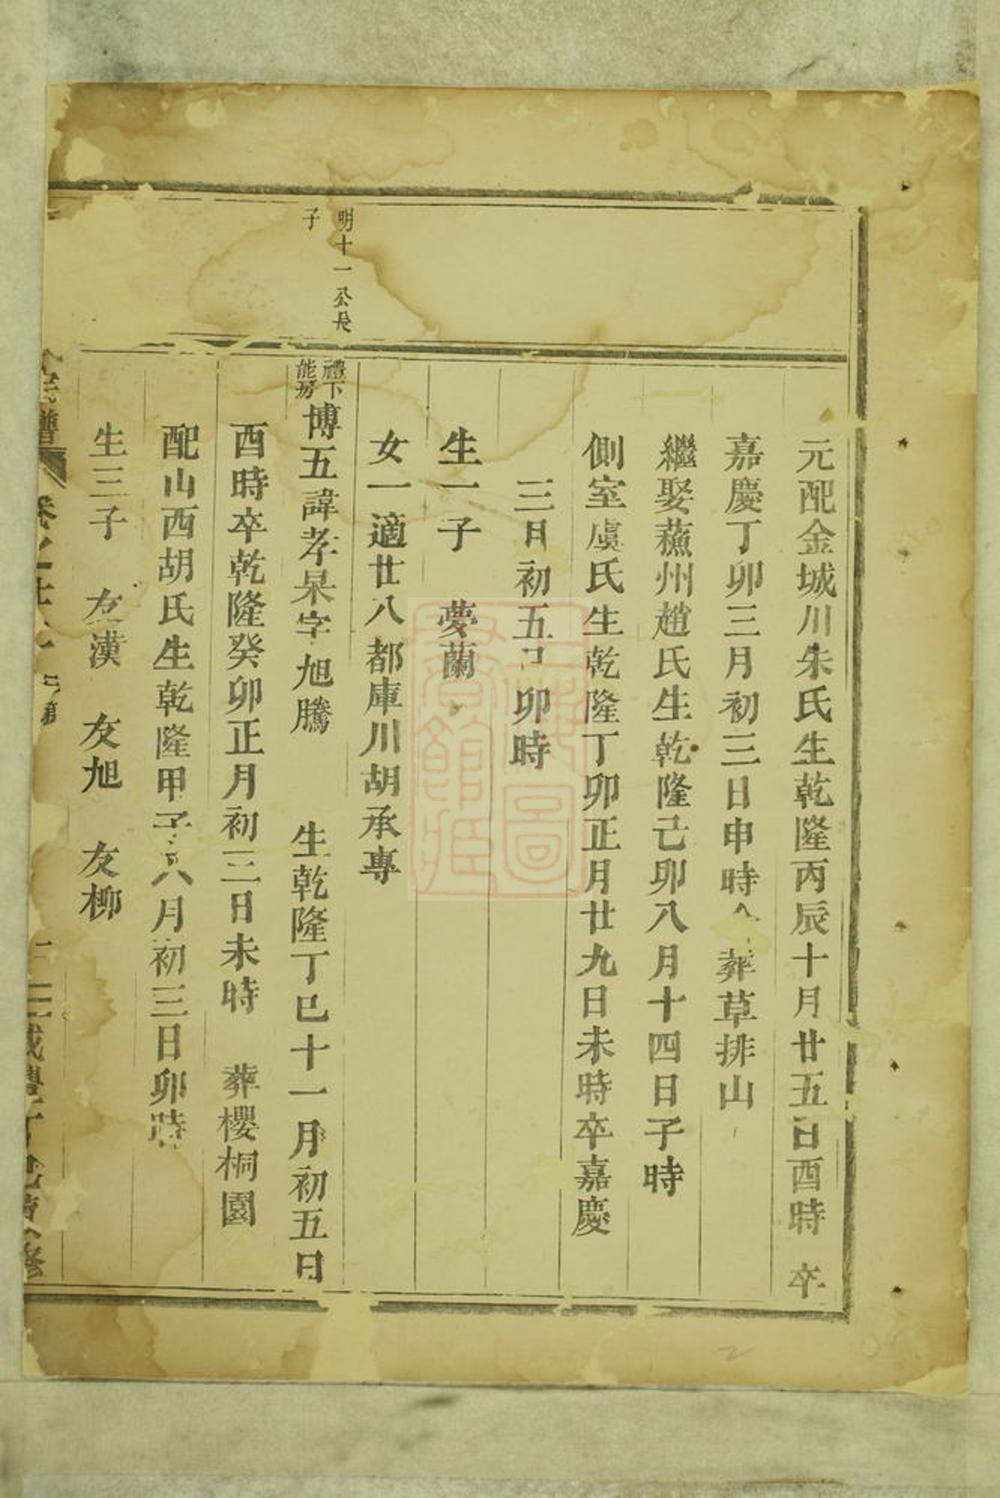 元配金城川朱氏生乾隆丙辰十月廿五日酉時 卒
嘉慶丁卯三月初三日申時 葬草排山
繼娶蘓州趙氏生乾隆己卯八月十四日子時
側室虞氏生乾隆丁卯正月廿九日未時卒嘉慶
三日初五日卯時
生一子 夢蘭
女一適廿八都庫川胡承專
明十一公長
子
禮下
能房
博五諱孝杲字旭騰 生乾隆丁巳十一月初五日
酉時卒乾隆癸卯正月初三日未時 葬櫻桐園
配山西胡氏生乾隆甲子八月初三日卯時
生三子 友漢 友旭 友柳